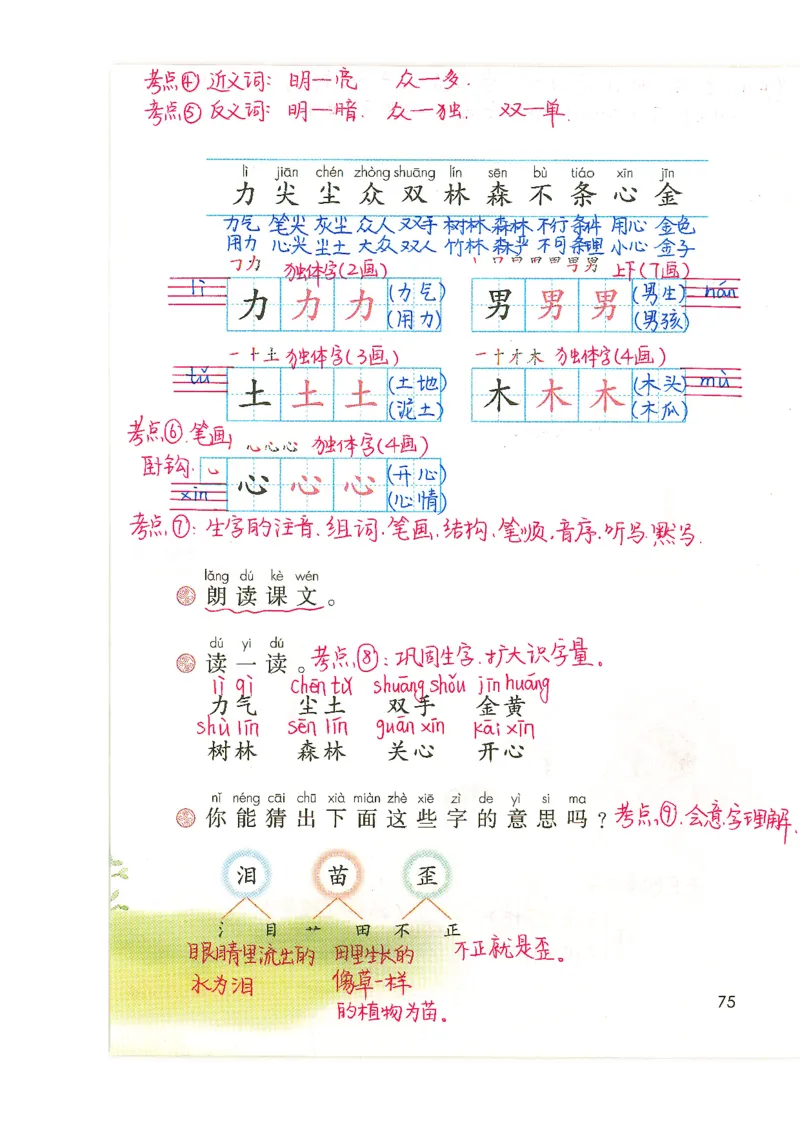 考点④ 近义词: 明一亮 众一多.
考点⑤ 反义词: 明一暗. 众一独. 双一单.
lì jiān chén zhòng shuāng lín sēn bù tiáo xīn jīn
力 尖 尘 众 双 林 森 不 条 心 金
力气 笔尖 灰尘 众人 双手 树林 森林 不行 条件 用心 金色
用力 心尖 尘土 大众 双人 竹林 森严 不可 条理 小心 金子
㇆力 独体字(2画) 上下(7画)
lì 力 力 力 (力气) 男 男 男 (男生) nán
(用力) (男孩)
一十土 独体字(3画) 一十才木 独体字(4画)
tǔ 土 土 土 (土地) 木 木 木 (木头) mù
(泥土) (木瓜)
考点⑥.笔画 心心心 独体字(4画)
卧钩.
xīn 心 心 心 (开心)
(心情)
考点⑦: 生字的注音、组词、笔画、结构、笔顺、音序、听写、默写.
lǎng dú kè wén
朗读课文。
dú yi dú
读一读。考点⑧: 巩固生字、扩大识字量。
lì qì chén tǔ shuāng shǒu jīn huáng
力气 尘土 双手 金黄
shù lín sēn lín guān xīn kāi xīn
树林 森林 关心 开心
nǐ néng cāi chū xià miàn zhè xiē zì de yì si ma
你能猜出下面这些字的意思吗？考点⑨.会意字理解.
泪 苗 歪
氵 目 艹 田 不 正
眼睛里流出的 田里生长的 不正就是歪。
水为泪 像草一样
的植物为苗。
75